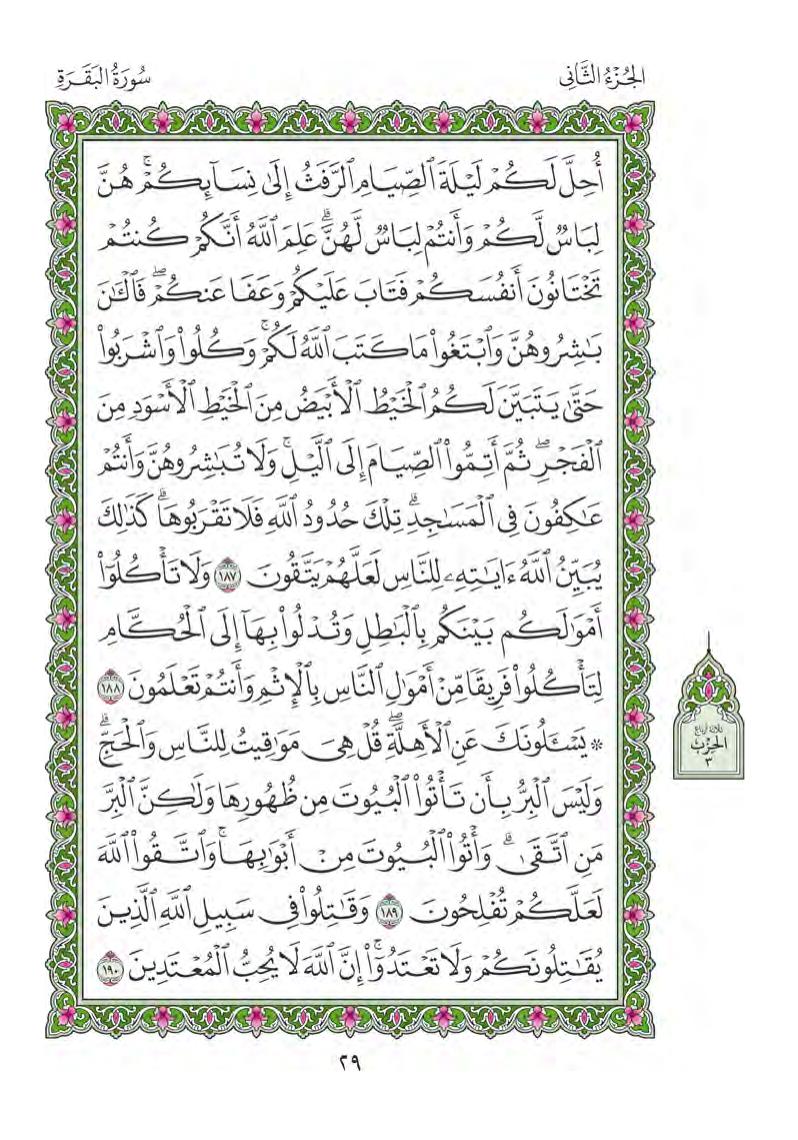 الجُزْءُ الثَّانِي
سُورَةُ البَقَرَةِ
أُحِلَّ لَكُمْ لَيْلَةَ ٱلصِّيَامِ ٱلرَّفَثُ إِلَىٰ نِسَآئِكُمْۚ هُنَّ
لِبَاسٌ لَّكُمْ وَأَنتُمْ لِبَاسٌ لَّهُنَّۗ عَلِمَ ٱللَّهُ أَنَّكُمْ كُنتُمْ
تَخْتَانُونَ أَنفُسَكُمْ فَتَابَ عَلَيْكُمْ وَعَفَا عَنكُمْۖ فَٱلْـَٰٔنَ
بَٰشِرُوهُنَّ وَٱبْتَغُوا۟ مَا كَتَبَ ٱللَّهُ لَكُمْۚ وَكُلُوا۟ وَٱشْرَبُوا۟
حَتَّىٰ يَتَبَيَّنَ لَكُمُ ٱلْخَيْطُ ٱلْأَبْيَضُ مِنَ ٱلْخَيْطِ ٱلْأَسْوَدِ مِنَ
ٱلْفَجْرِۖ ثُمَّ أَتِمُّوا۟ ٱلصِّيَامَ إِلَى ٱلَّيْلِۚ وَلَا تُبَٰشِرُوهُنَّ وَأَنتُمْ
عَٰكِفُونَ فِى ٱلْمَسَٰجِدِۗ تِلْكَ حُدُودُ ٱللَّهِ فَلَا تَقْرَبُوهَاۗ كَذَٰلِكَ
يُبَيِّنُ ٱللَّهُ ءَايَٰتِهِۦ لِلنَّاسِ لَعَلَّهُمْ يَتَّقُونَ ١٨٧ وَلَا تَأْكُلُوٓا۟
أَمْوَٰلَكُم بَيْنَكُم بِٱلْبَٰطِلِ وَتُدْلُوا۟ بِهَآ إِلَى ٱلْحُكَّامِ
لِتَأْكُلُوا۟ فَرِيقًا مِّنْ أَمْوَٰلِ ٱلنَّاسِ بِٱلْإِثْمِ وَأَنتُمْ تَعْلَمُونَ ١٨٨
۞ يَسْـَٔلُونَكَ عَنِ ٱلْأَهِلَّةِۖ قُلْ هِىَ مَوَٰقِيتُ لِلنَّاسِ وَٱلْحَجِّۗ
وَلَيْسَ ٱلْبِرُّ بِأَن تَأْتُوا۟ ٱلْبُيُوتَ مِن ظُهُورِهَا وَلَٰكِنَّ ٱلْبِرَّ
مَنِ ٱتَّقَىٰۗ وَأْتُوا۟ ٱلْبُيُوتَ مِنْ أَبْوَٰبِهَاۚ وَٱتَّقُوا۟ ٱللَّهَ
لَعَلَّكُمْ تُفْلِحُونَ ١٨٩ وَقَٰتِلُوا۟ فِى سَبِيلِ ٱللَّهِ ٱلَّذِينَ
يُقَٰتِلُونَكُمْ وَلَا تَعْتَدُوٓا۟ۚ إِنَّ ٱللَّهَ لَا يُحِبُّ ٱلْمُعْتَدِينَ ١٩٠
ثلاثة أرباع
الحِزْب
٣
٢٩